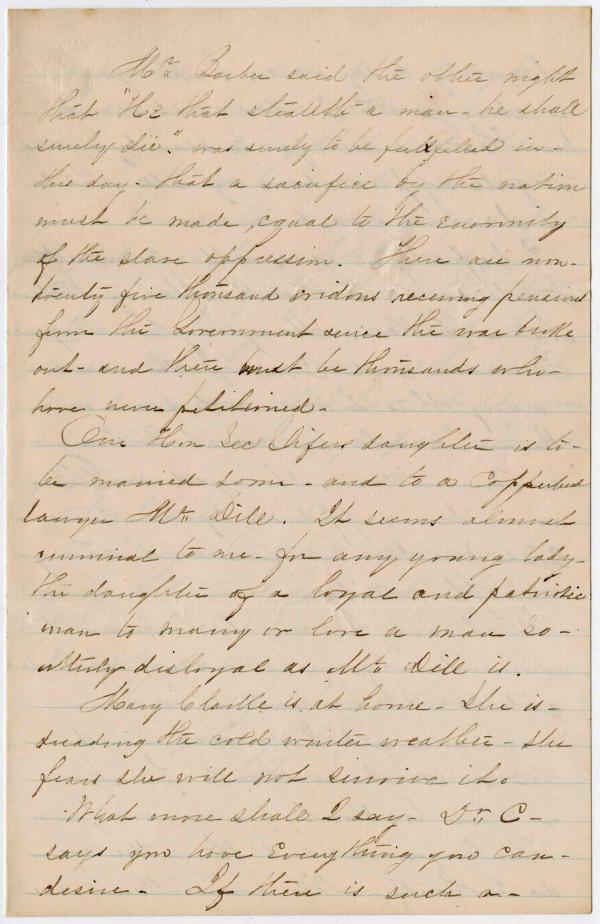 Mr. Barber said the other night
that "He that stealeth a man - he shall
surely die." was surely to be fulfilled in -
this day - that a sacrifice by the nation
must be made, equal to the enormity
of the slave oppression. There are now -
twenty five thousand widows receiving pensions
from the Government since the war broke
out - and there must be thousands who -
have never petitioned -
Our Hon Sec daughter is to -
be married soon - and to a Copperhead
lawyer Mr. Dill. It seems almost
criminal to me - for any young lady -
the daughter of a loyal and patriotic
man to marry or love a man so -
utterly disloyal as Mr. Dill is.
Mary Clarke is at home - She is -
dreading the cold winter weather - she
fears she will not survive it.
What more shall I say - Dr. C -
says you have everything you can -
desire - If there is such a -